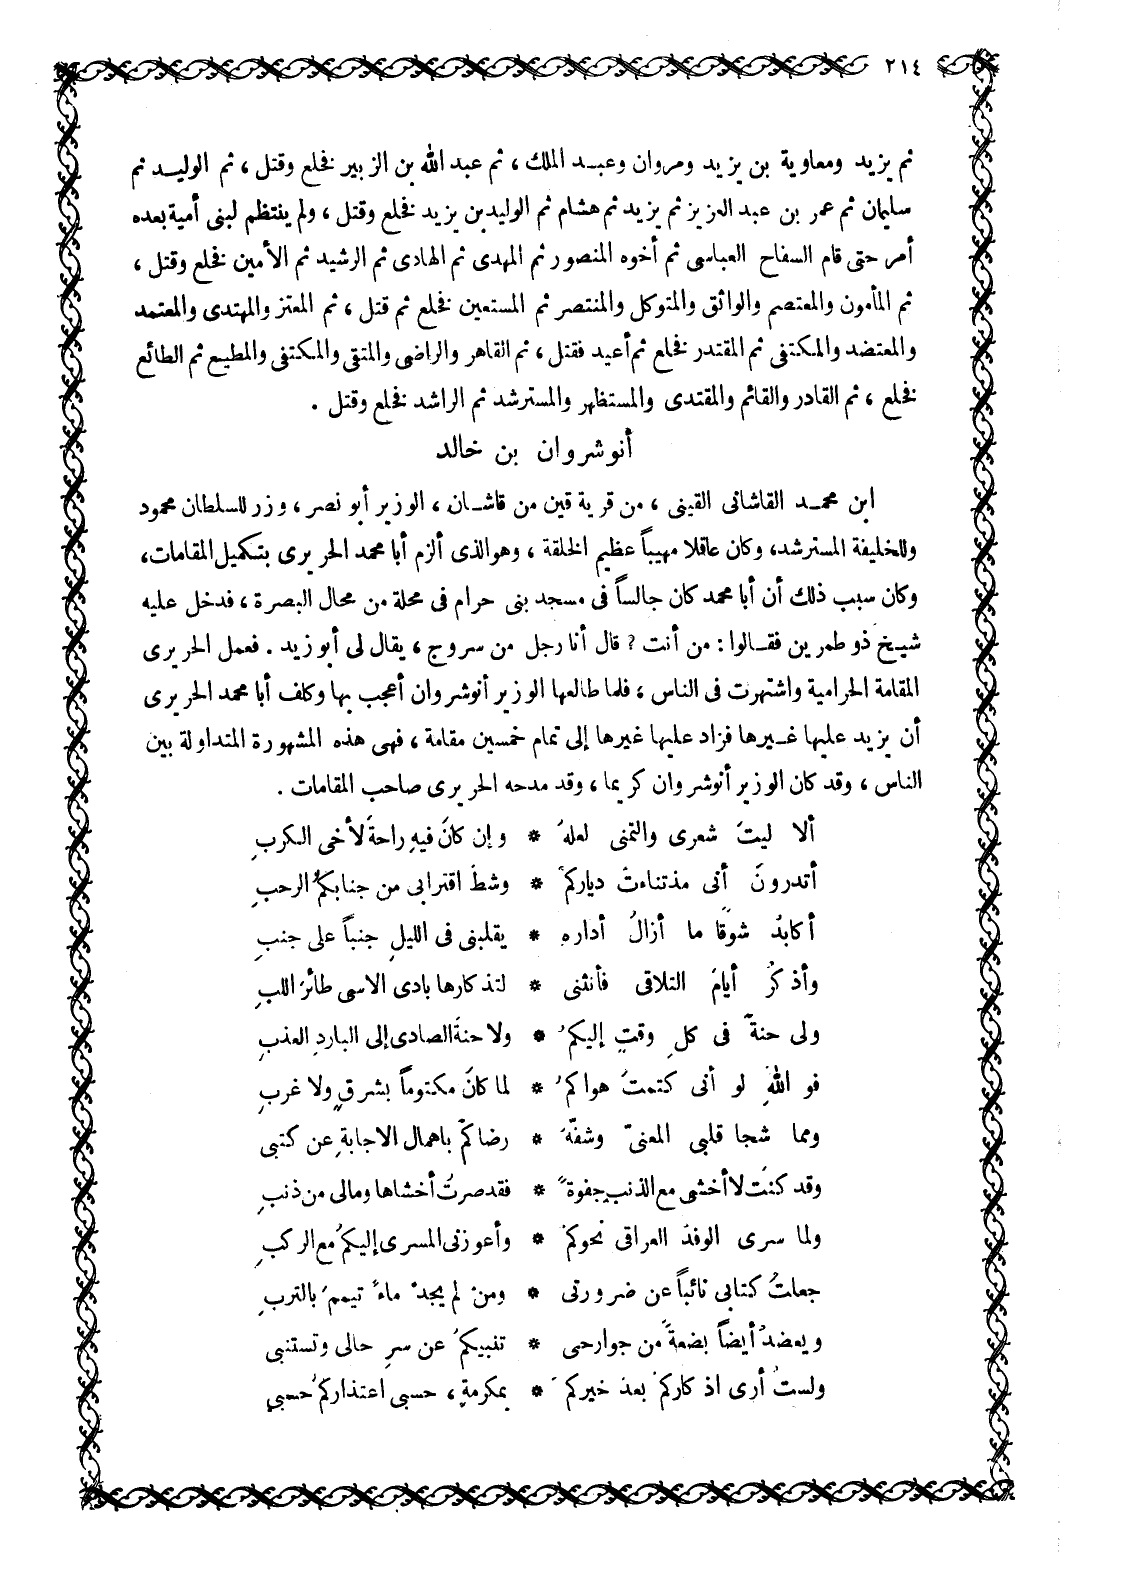 ٢١٤
ثم يزيد ومعاوية بن يزيد ومروان وعبد الملك ، ثم عبد الله بن الزبير فخلع وقتل ، ثم الوليد ثم
سليمان ثم عمر بن عبد العزيز ثم يزيد ثم هشام ثم الوليد بن يزيد فخلع وقتل ، ولم ينتظم لبنى أمية بعده
أمر حتى قام السفاح العباسى ثم أخوه المنصور ثم المهدى ثم الهادى ثم الرشيد ثم الأمين فخلع وقتل ،
ثم المأمون والمعتصم والواثق والمتوكل والمنتصر ثم المستعين فخلع ثم قتل ، ثم المعتز والمهتدى والمعتمد
والمعتضد والمكتفى ثم المقتدر فخلع ثم أعيد فقتل ، ثم القاهر والراضى والمتقى والمكتفى والمطيع ثم الطائع
فخلع ، ثم القادر والقائم والمقتدى والمستظهر والمسترشد ثم الراشد فخلع وقتل .
أنوشروان بن خالد
ابن محمد القاشانى القينى ، من قرية قين من قاشان ، الوزير أبو نصر ، وزر للسلطان محمود
وللخليفة المسترشد، وكان عاقلا مهيباً عظيم الخلقة ، وهو الذى ألزم أبا محمد الحريرى بتكميل المقامات،
وكان سبب ذلك أن أبا محمد كان جالساً فى مسجد بنى حرام فى محلة من محال البصرة ، فدخل عليه
شيخ ذو طمرين فقالوا : من أنت ? قال أنا رجل من سروج ، يقال لى أبو زيد . فعمل الحريرى
المقامة الحرامية واشتهرت فى الناس ، فلما طالعها الوزير أنوشروان أعجب بها وكلف أبا محمد الحريرى
أن يزيد عليها غيرها فزاد عليها غيرها إلى تمام خمسين مقامة ، فهى هذه المشهورة المتداولة بين
الناس ، وقد كان الوزير أنوشروان كريما ، وقد مدحه الحريرى صاحب المقامات .
ألا ليتَ شعرى والتمنى لعلهُ * وإن كانَ فيهِ راحةَ لأخى الكربِ
أتدرونَ أنى مذ تناءتْ دياركمْ * وشطَ اقترابى من جنابكمُ الرحبِ
أكابدُ شوقًا ما أزالُ أدارهِ * يقلبنى فى الليلِ جنباً على جنبِ
وأذكرُ أيامَ التلاقى فأنثنى * لتذكارها بادى الاسى طائرَ اللبِ
ولى حنةٌ فى كلِ وقتٍ إليكمُ * ولا حنةَ الصادى إلى الباردِ العذبِ
فو اللهِ لو أنى كتمتُ هواكمُ * لما كانَ مكتوماً بشرقٍ ولا غربِ
ومما شجا قلبى المعنىّ وشفّهَ * رضاكمْ باهمال الاجابةِ عن كتبى
وقد كنتُ لا أخشى مع الذنبِ جفوةً * فقد صرتُ أخشاها ومالى من ذنبِ
ولما سرى الوفدُ العراقى نحوكمْ * وأعوزنى المسرى إليكمُ مع الركبِ
جعلتُ كتابى نائباً عن ضرورتى * ومنْ لم يجدْ ماءً تيممَ بالتربِ
ويعضدُ أيضاً بضعةً من جوارحى * تنبيكمُ عن سرِ حالى وتستنبى
ولستُ أرى اذكاركمْ بعدَ خيركمْ * بمكرمةٍ ، حسبى اعتذاركمُ حسبى